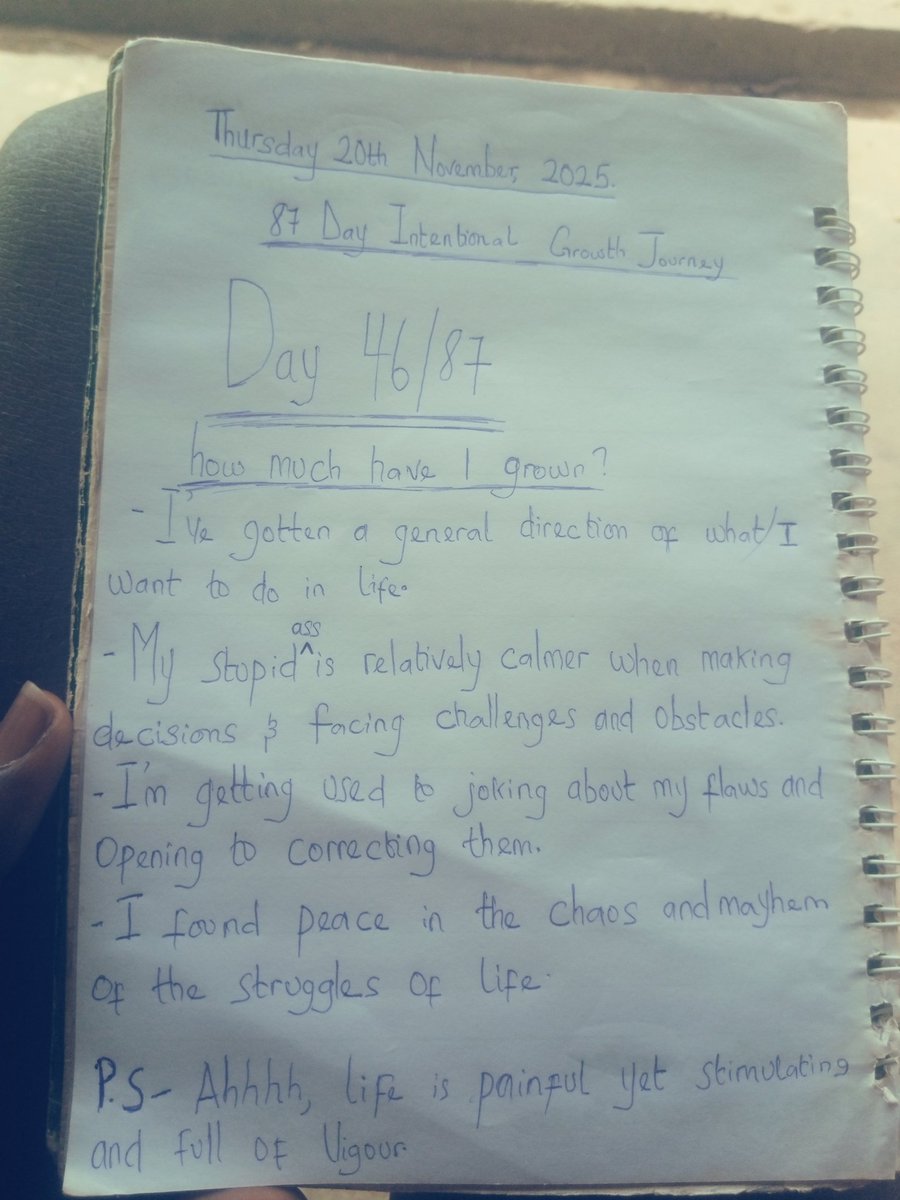 Thursday 20th November, 2025.
87 Day Intentional Growth Journey
Day 46/87
how much have I grown?
- I've gotten a general direction of what/I
want to do in life.
- My stupid ^ass is relatively calmer when making
decisions & facing challenges and obstacles.
- I'm getting used to joking about my flaws and
Opening to correcting them.
- I found peace in the chaos and mayhem
Of the struggles of life.
P.S- Ahhhh, life is painful yet stimulating
and full of Vigour.